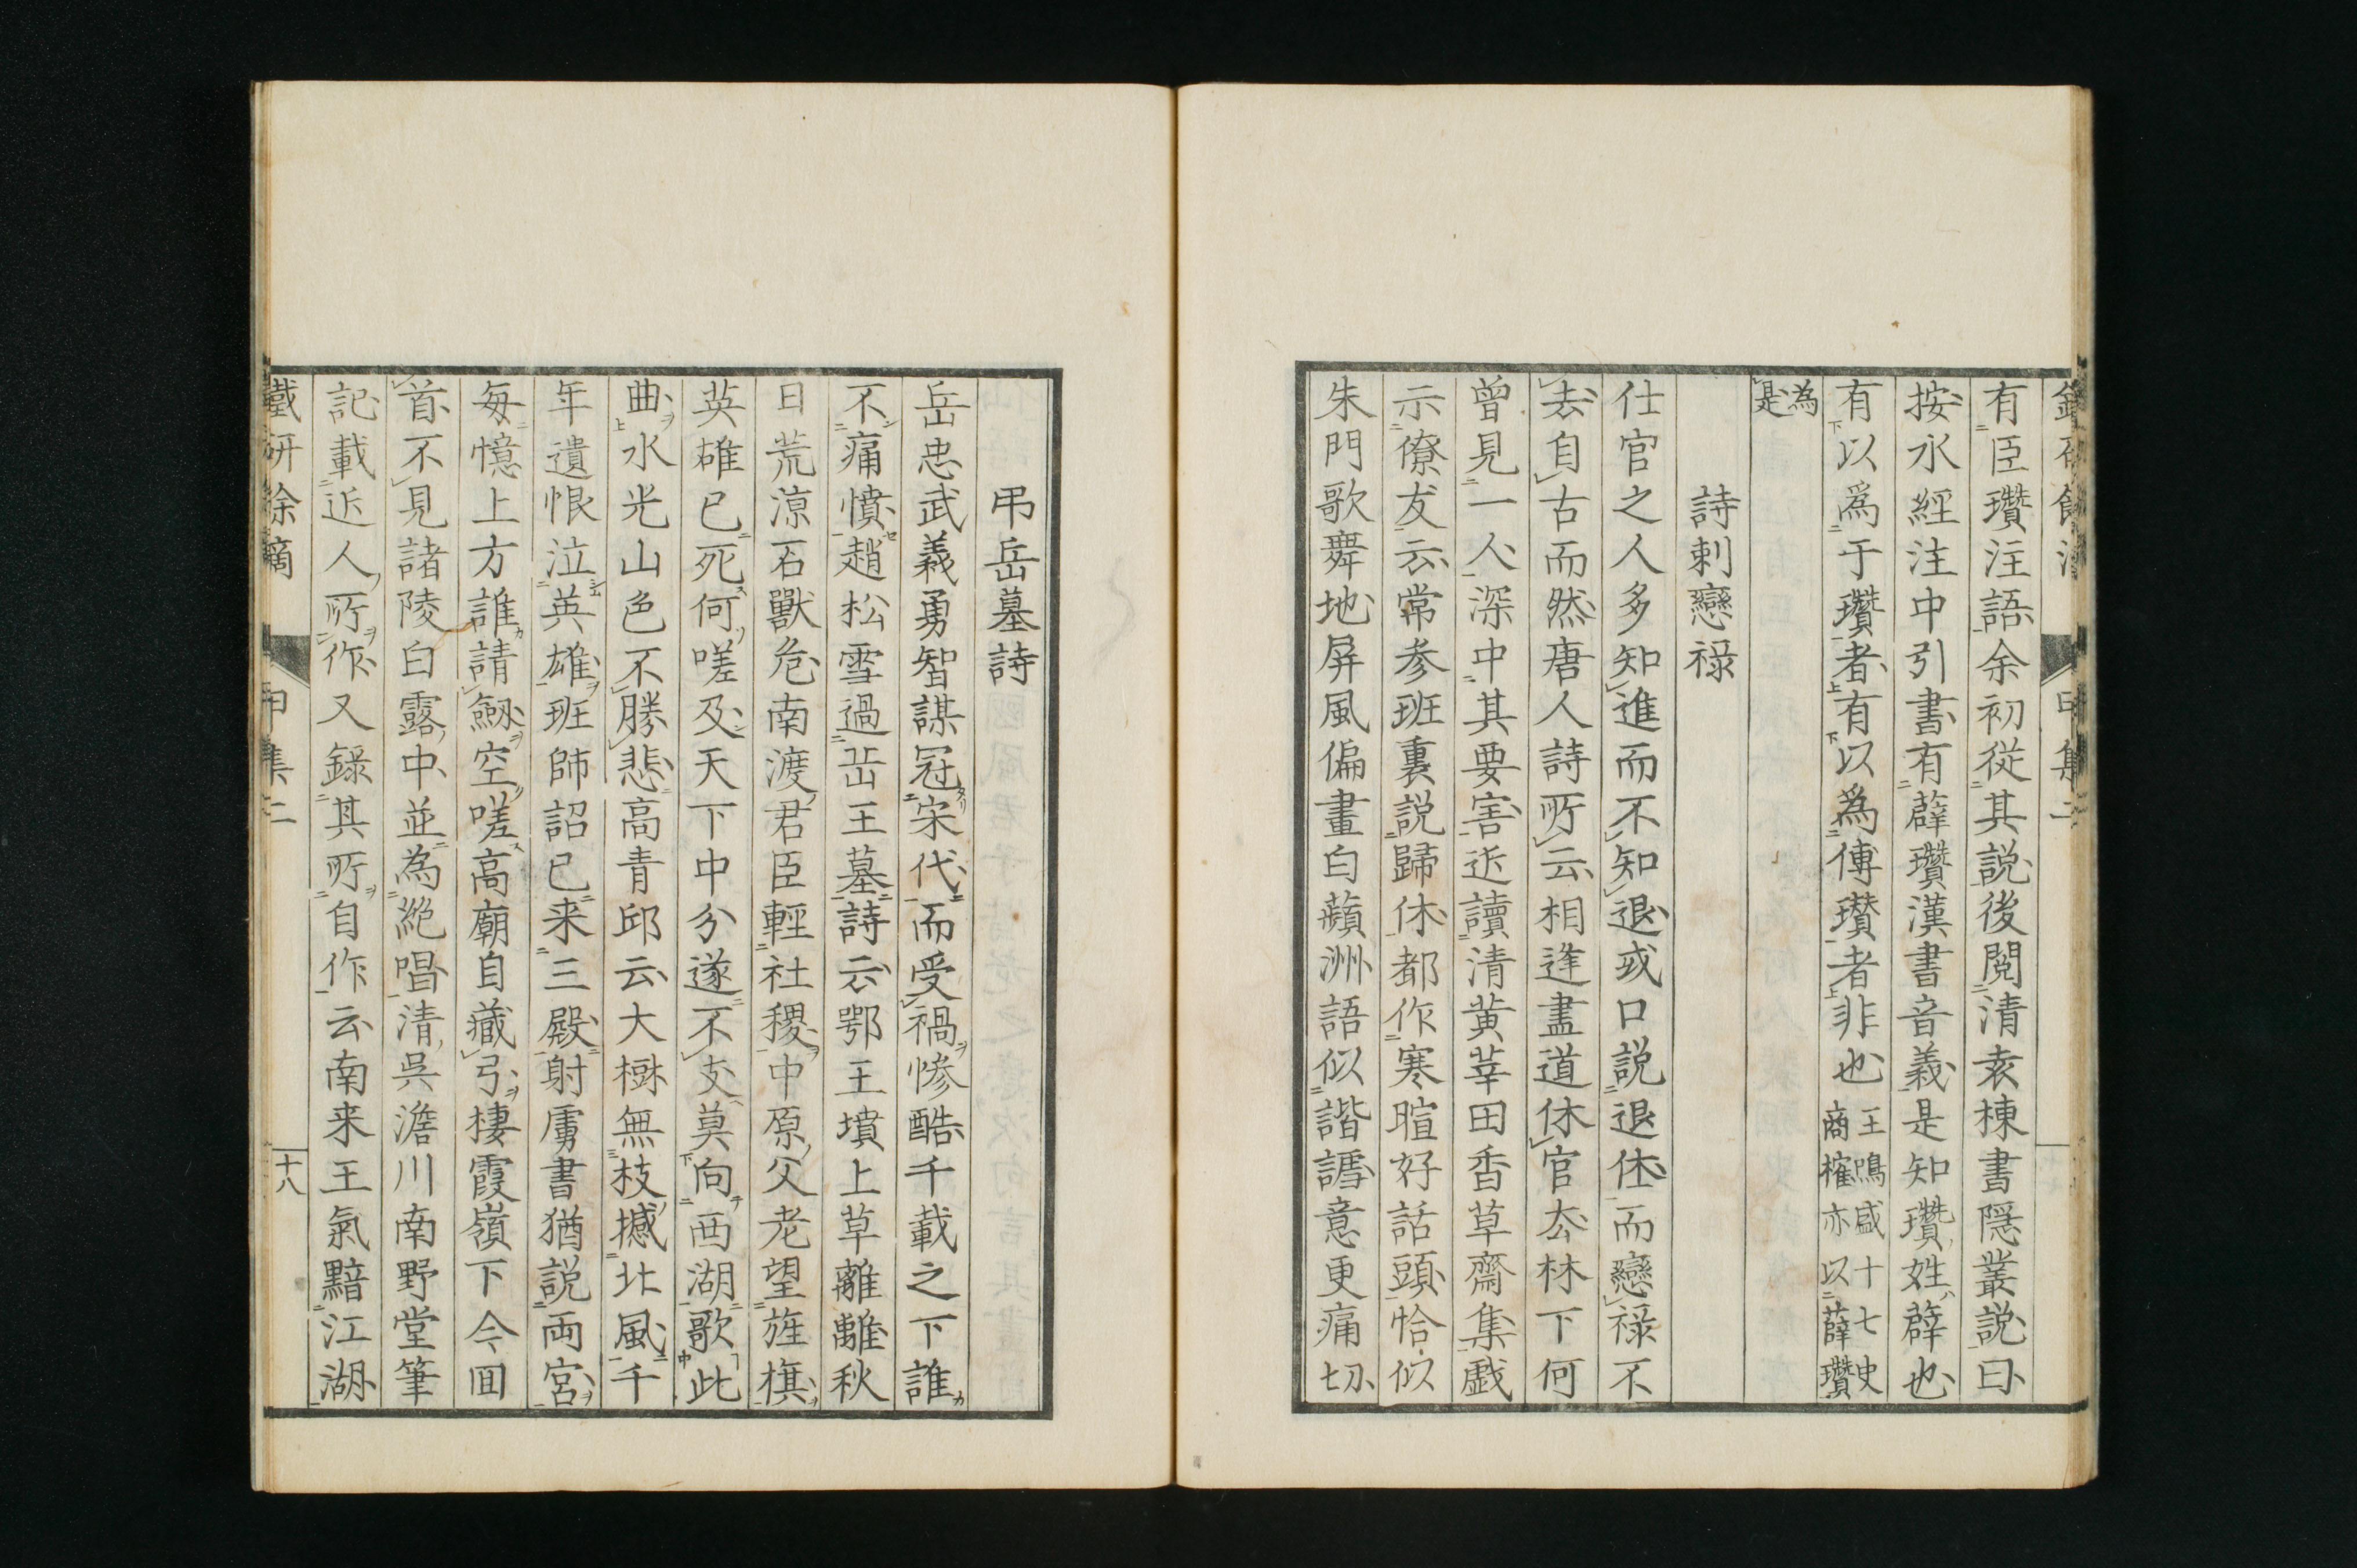 有臣瓚注語余初從其説後閲清袁棟書隱叢説曰
按水經注中引書有薛瓚漢書音義是知瓚姓薛也
有以爲于瓚者有以爲傅瓚者非也王鳴盛十七史商榷亦以薛瓚
為是
詩刺戀祿
仕官之人多知進而不知退或口説退休而戀祿不
去自古而然唐人詩所云相逢盡道休官去林下何
曾見一人深中其要害近讀清黄莘田香草齋集戯
示僚友云常参班裏説歸休都作寒暄好話頭恰似
朱門歌舞地屏風偏畫白蘋洲語似諧謔意更痛切
弔岳墓詩
岳忠武義勇智謀冠宋代而受禍惨酷千載之下誰
不痛憤趙松雪過岳王墓詩云鄂王墳上草離離秋
日荒凉石獸危南渡君臣輕社稷中原父老望旌旗
英雄已死何嗟及天下中分遂不支莫向西湖歌此
曲水光山色不勝悲高青邱云大樹無枝撼北風千
年遺恨泣英雄班師詔已来三殿射虜書猶説両宮
毎憶上方誰請劒空嗟高廟自藏弓棲霞嶺下今回
首不見諸陵白露中並為絶唱清呉澹川南野堂筆
記載近人所作又録其所自作云南来王氣黯江湖
鐵研餘滴　甲集二　十八